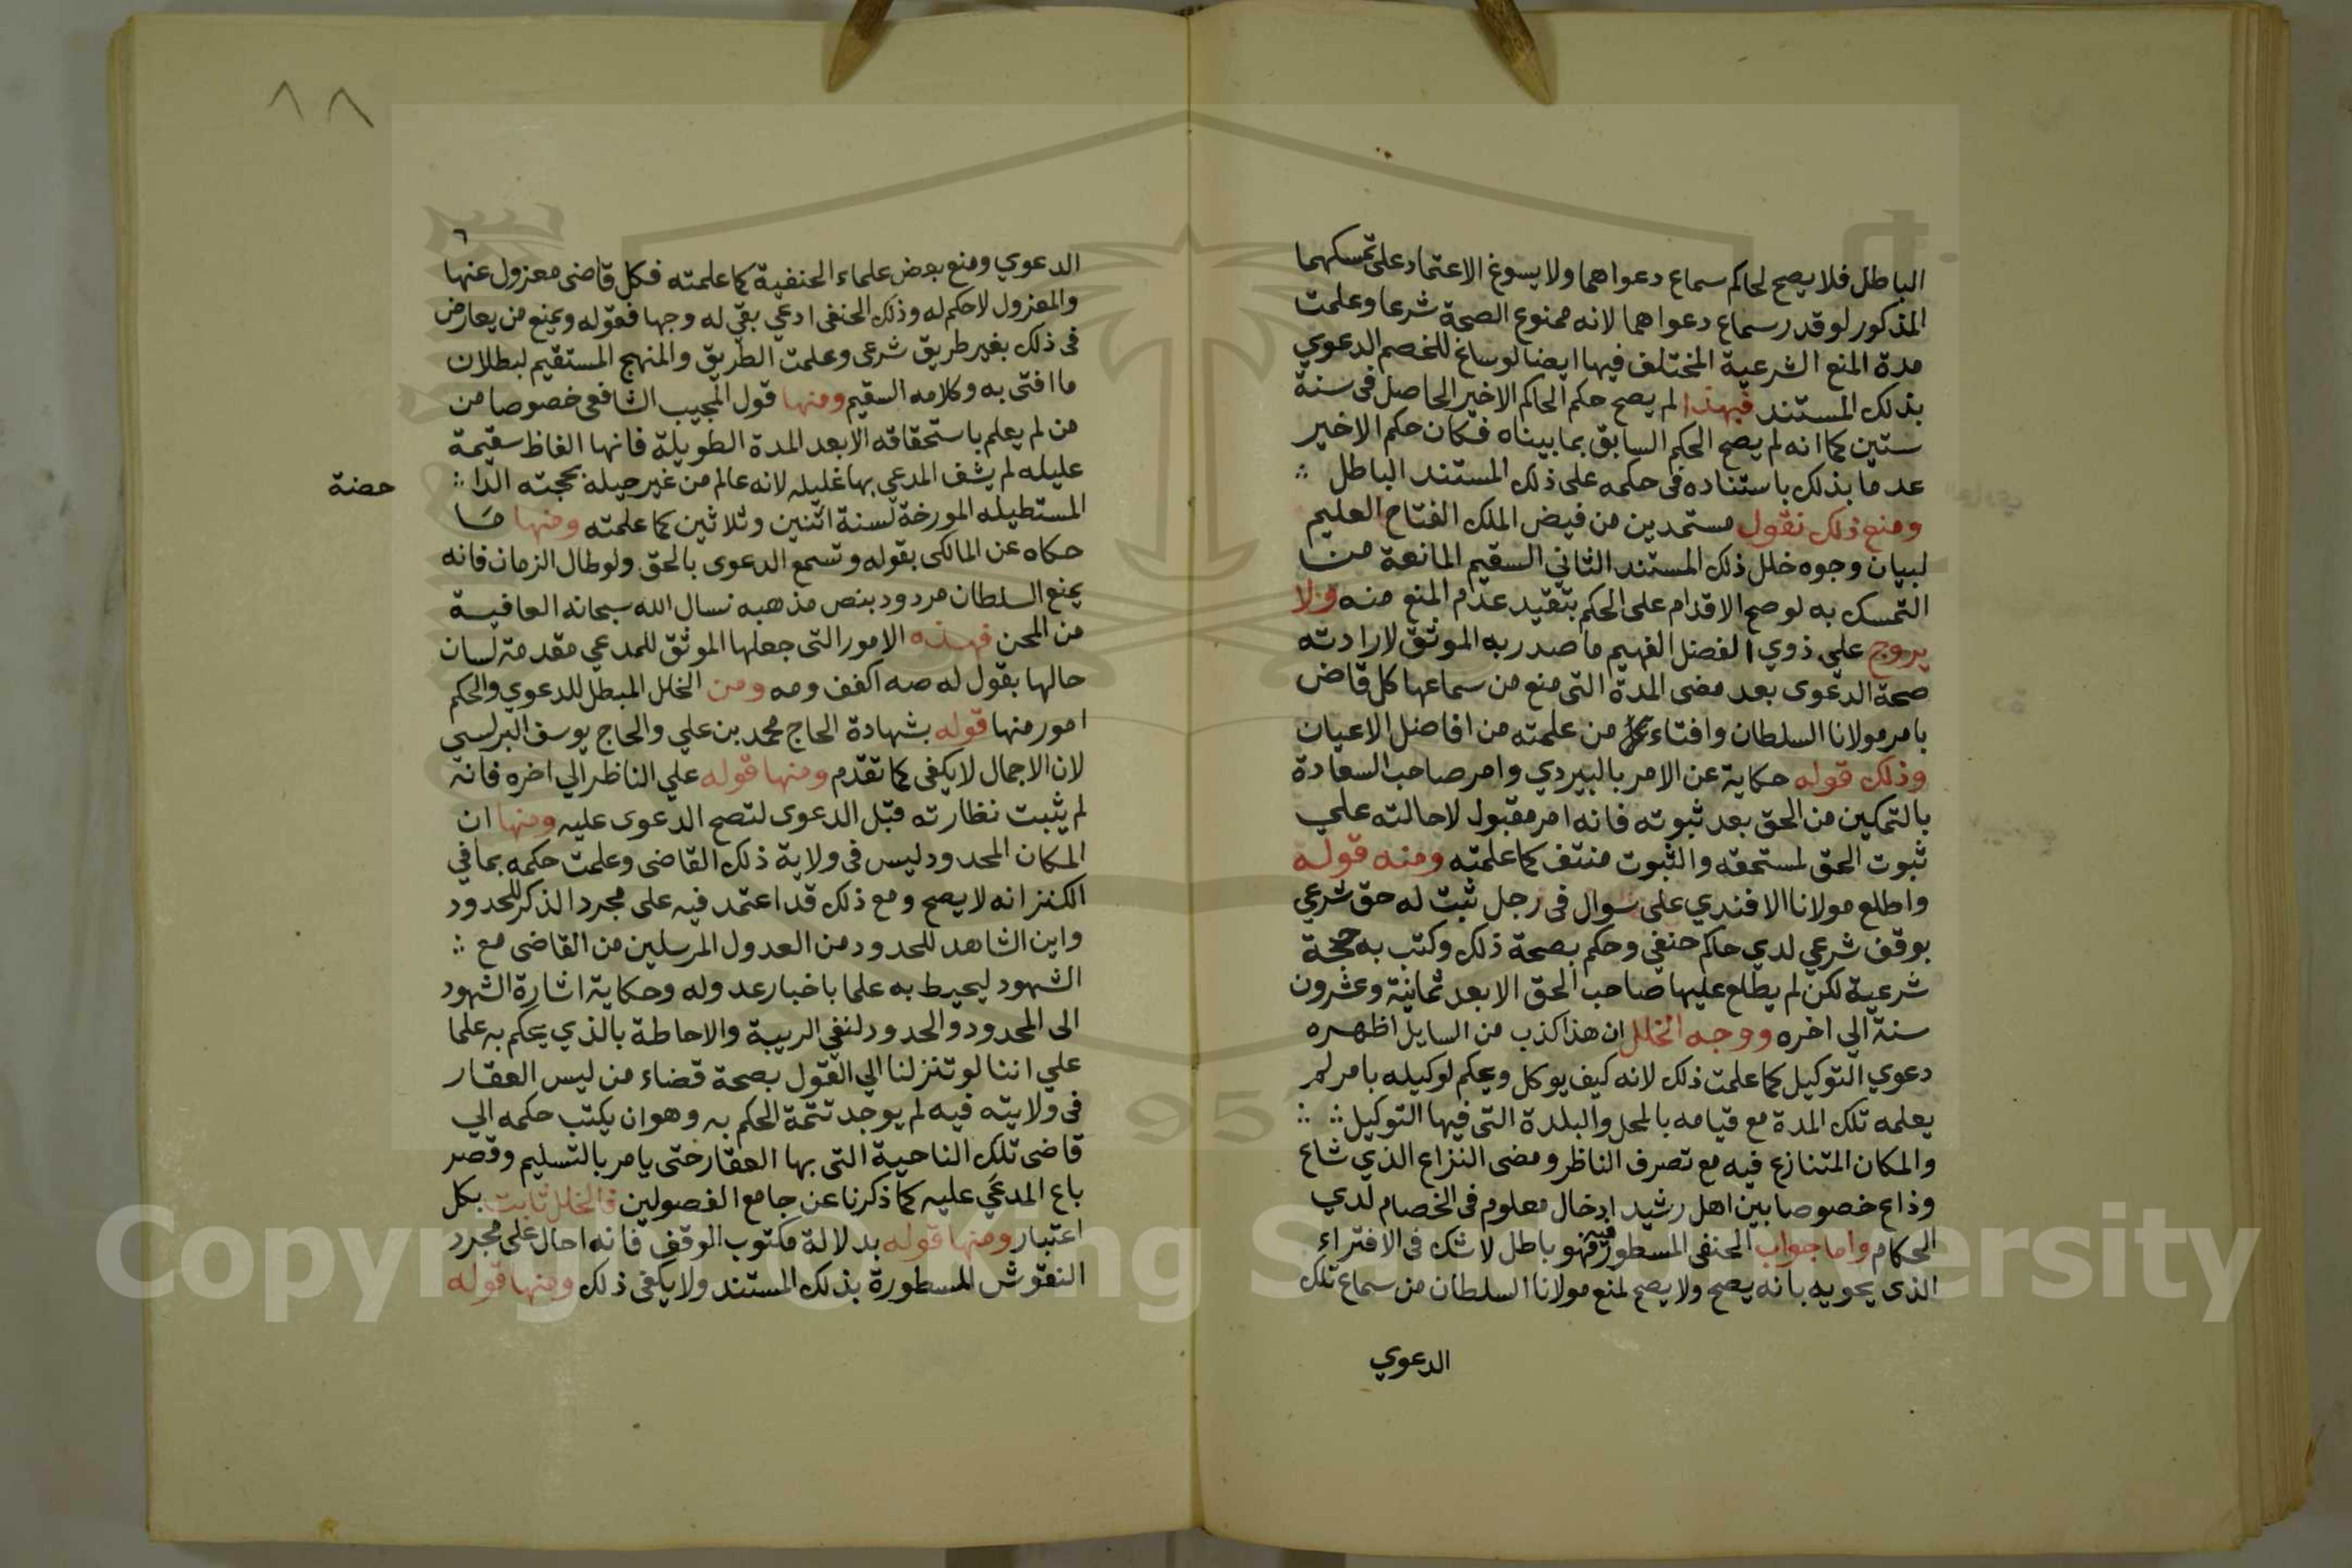 الباطل فلا يصح لحاكم سماع دعواهما ولا يسوغ الاعتماد على تمسكهما
المذكور لو قدر سماع دعواهما لانه ممنوع الصحة شرعا وعلمت
مدة المنع الشرعية المختلف فيها ايضا لو ساغ للخصم الدعوي
بذلك المستند فبهذا لم يصح حكم الحاكم الاخير الحاصل في سنة
ستين كما انه لم يصح الحكم السابق بما بيناه فكان حكم الاخير
عدما بذلك باستناده في حكمه على ذلك المستند الباطل
ومنع ذلك نقول مستمدين من فيض الملك الفتاح العليم
لبيان وجوه خلل ذلك المستند الثاني السقيم المانعة من
التمسك به لو صح الاقدام على الحكم بتقيد عدام المنع منه ولا
يروج علي ذوي الفضل الفهيم ما صدر به الموثق لارادته
صحة الدعوى بعد مضى المدة التى منع من سماعها كل قاض
بامر مولانا السلطان وافتاء من علمته من افاضل الاعيان
وذلك قوله حكاية عن الامر بالبيردي وامر صاحب السعادة
بالتمكين من الحق بعد ثبوته فانه امر مقبول لاحالته علي
ثبوت الحق لمستحقه والثبوت منتف كما علمته ومنه قوله
واطلع مولانا الافندي على سوال في رجل ثبت له حق شرعي
بوقف شرعي لدي حاكم حنفي وحكم بصحة ذلك وكتب به حجة
شرعية لكن لم يطلع عليها صاحب الحق الا بعد ثمانية وعشرون
سنة الي اخره ووجه الخلل ان هذا كذب من السايل اظهره
دعوي التوكيل كما علمت ذلك لانه كيف يوكل ويحكم لوكيله بامر لم
يعلمه تلك المدة مع قيامه بالمحل والبلدة التى فيها التوكيل
والمكان المتنازع فيه مع تصرف الناظر ومضى النزاع الذي شاع
وذاع خصوصا بين اهل رشيد ادخال معلوم في الخصام لدي
الحكام واما جواب الحنفى المسطور فيه فهو باطل لا شك في الافتراء
الذى يحويه بانه يصح ولا يصح لمنع مولانا السلطان من سماع تلك
الدعوي
١٨
٦
الدعوي ومنع بعض علماء الحنفية كما علمته فكل قاضى معزول عنها
والمعزول لا حكم له وذلك الحنفى ادعي بقي له وجها فقوله ويمنع من يعارض
فى ذلك بغير طريق شرعى وعلمت الطريق والمنهج المستقيم لبطلان
ما افتى به وكلامه السقيم ومنها قول المجيب الشافعى خصوصا من
من لم يعلم باستحقاقه الا بعد المدة الطويلة فانها الفاظ سقيمة
عليله لم يشف المدعي بها غليله لانه عالم من غير حيلة بحجته الدا
حضة
المستطيله المورخة لسنة اثنين وثلاثين كما علمته ومنها ما
حكاه عن المالكى بقوله وتسمع الدعوى بالحق ولو طال الزمان فانه
يمنع السلطان مردود بنص مذهبه نسال الله سبحانه العافية
من المحن فهذه الامور التى جعلها الموثق للمدعي مقدمة لسان
حالها بقول له صه اكفف ومه ومن الخلل المبطل للدعوي والحكم
امور منها قوله بشهادة الحاج محمد بن علي والحاج يوسف البرلسي
لان الاجمال لا يكفى كما تقدم ومنها قوله علي الناظر الي اخره فانه
لم يثبت نظارته قبل الدعوى لتصح الدعوى عليه ومنها ان
المكان المحدود ليس فى ولاية ذلك القاضى وعلمت حكمه بما في
الكنز انه لا يصح ومع ذلك قد اعتمد فيه على مجرد الذكر للحدود
واين الشاهد للحدود من العدول المرسلين من القاضى مع
الشهود ليحيط به علما باخبار عدوله وحكاية اشارة الشهود
الى المحدود والحدود لنفي الريبة والاحاطة بالذي يحكم به علما
علي اننا لو تنزلنا الي القول بصحة قضاء من ليس العقار
فى ولايته فيه لم يوجد تتمة الحكم به وهو ان يكتب حكمه الي
قاضى تلك الناحية التى بها العقار حتى يامر بالتسليم وقصر
باع المدعي عليه كما ذكرنا عن جامع الفصولين فالخلل ثابت بكل
اعتبار ومنها قوله بدلالة مكتوب الوقف فانه احال على مجرد
النقوش المسطورة بذلك المستند ولا يكفى ذلك ومنها قوله
Copyright © King Saud University
1957